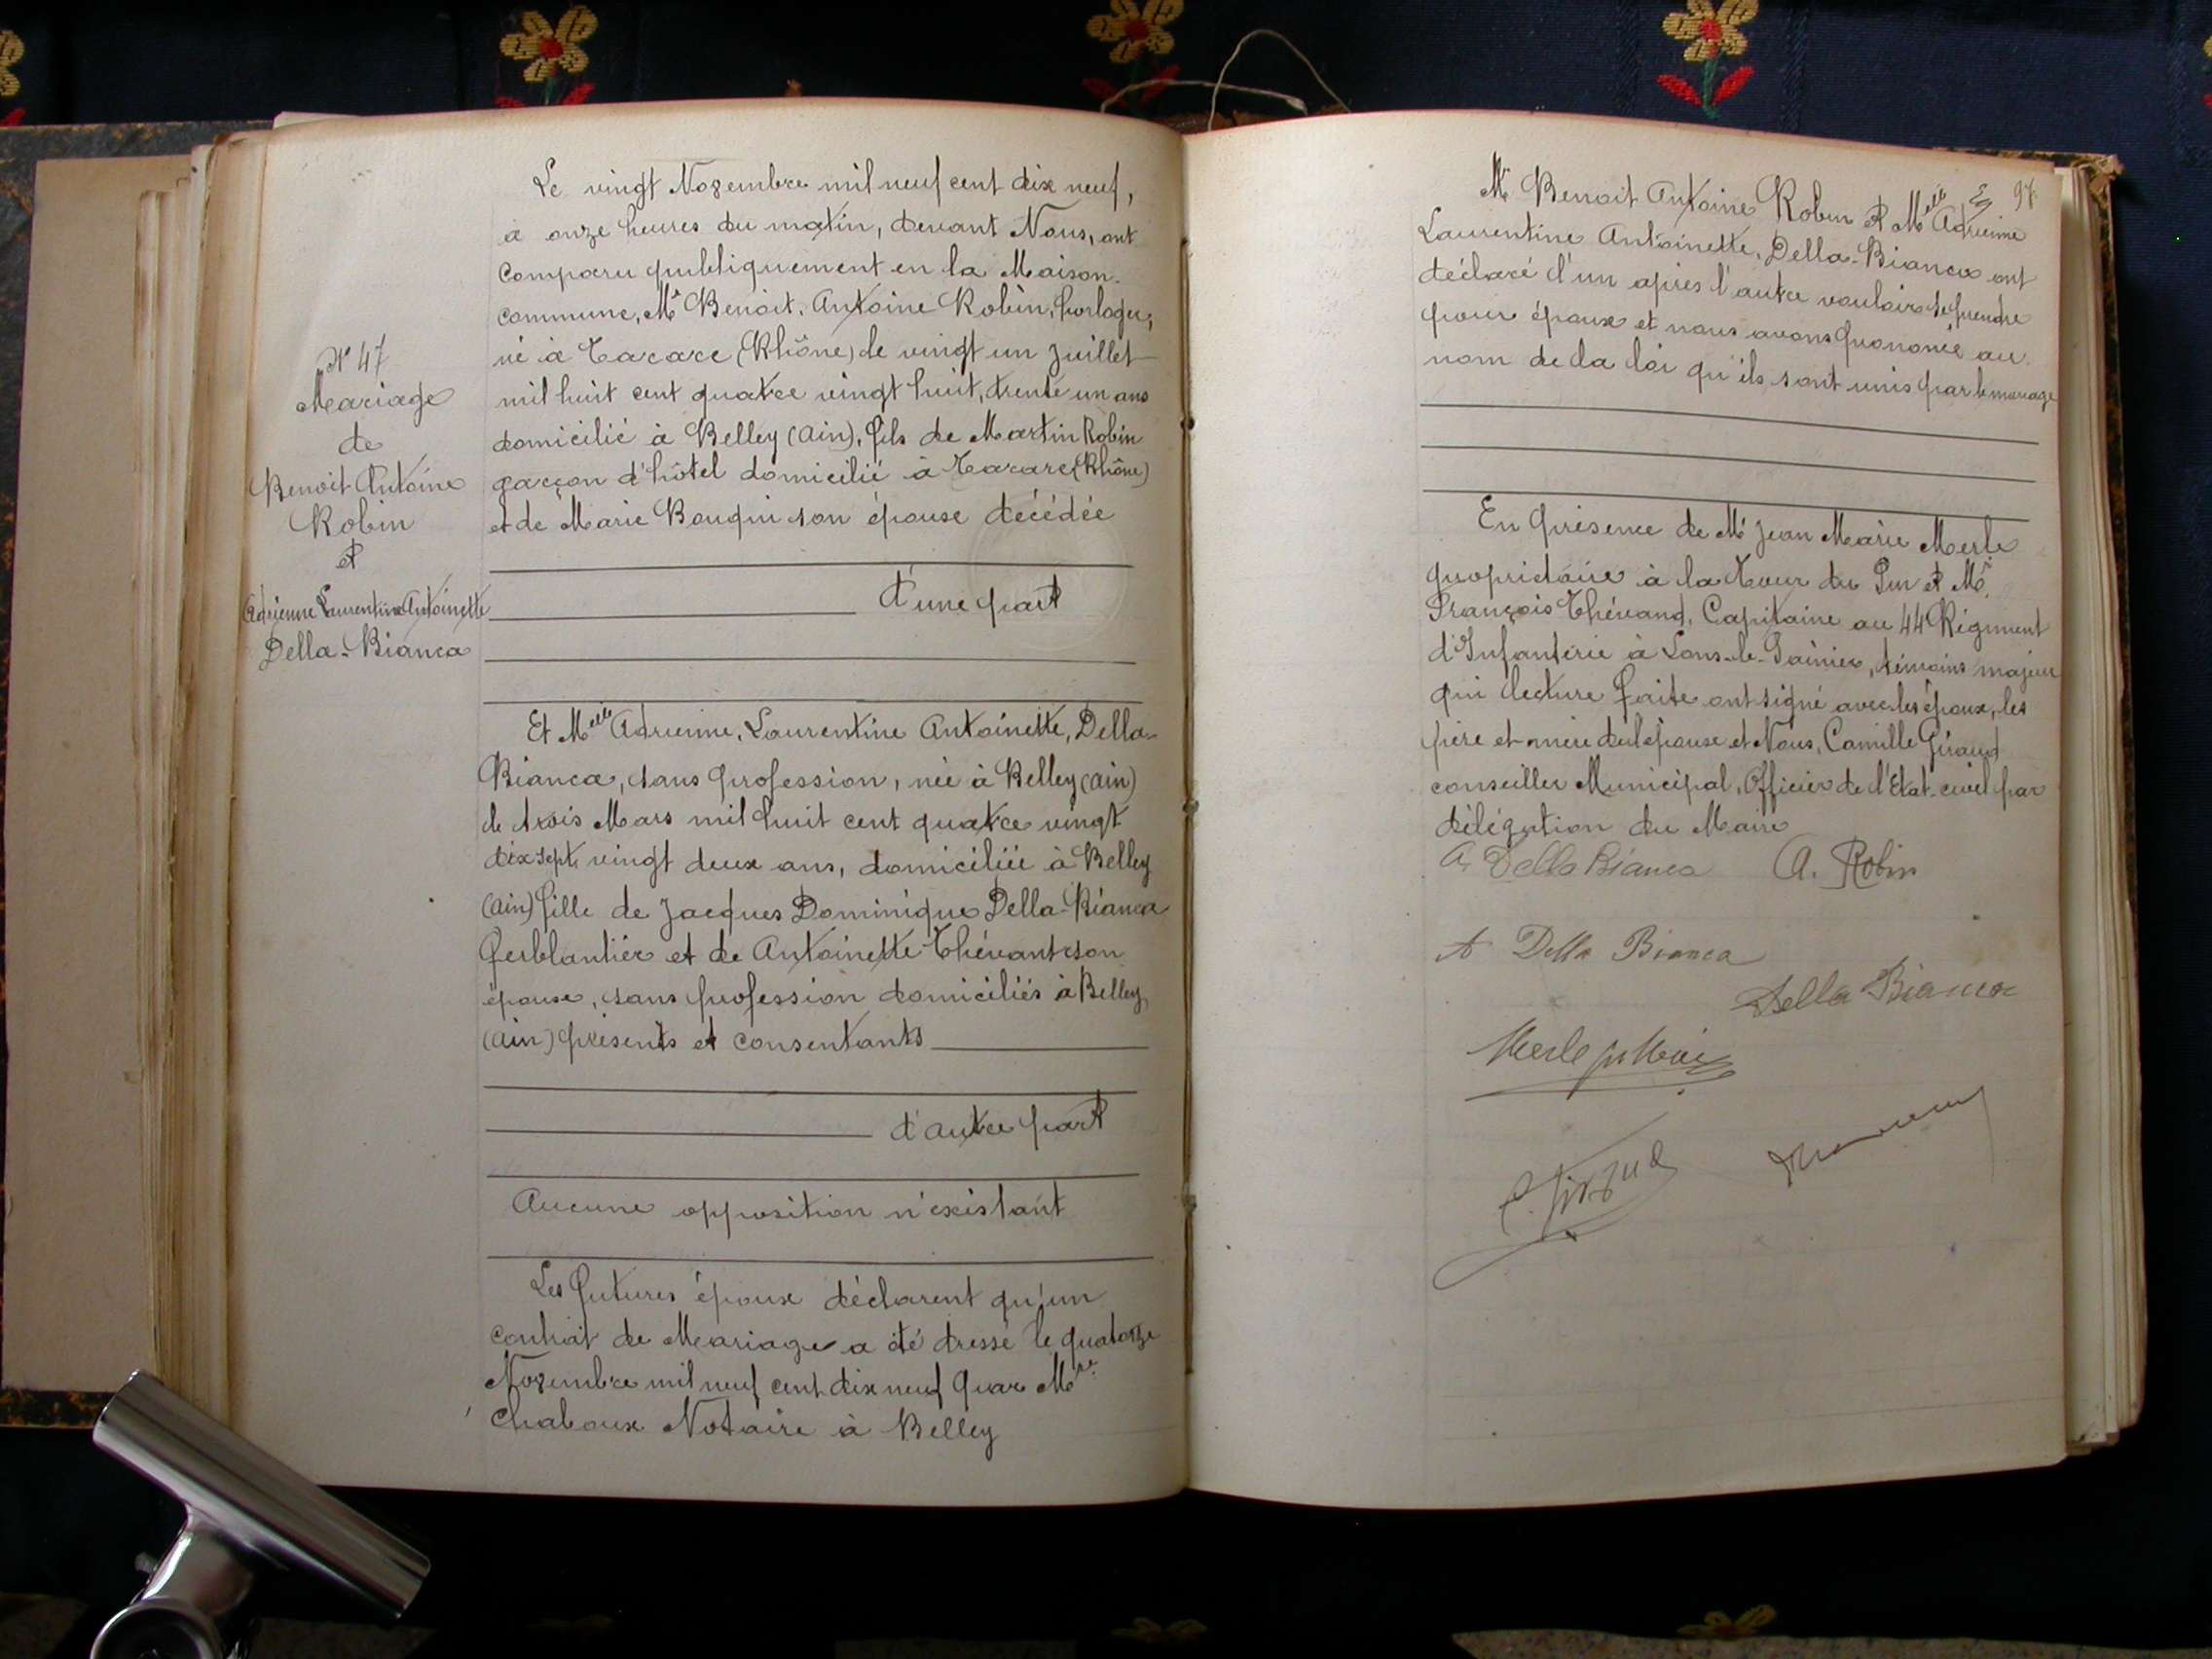 N° 47
Mariage
de
Benoit Antoine
Robin
et
Adrienne Laurentine Antoinette
Della-Bianca
Le vingt Novembre mil neuf cent dix neuf,
à onze heures du matin, devant Nous, ont
Comparu publiquement en la Maison-
commune, Mr Benoit, Antoine Robin, horloger,
né à Tarare (Rhône) le vingt un Juillet
mil huit cent quatre vingt huit, trente un ans
domicilié à Belley (Ain), fils de Martin Robin
garçon d'hôtel domicilié à Tarare (Rhône)
et de Marie Bouquin son épouse décédée
d'une part
Et Melle Adrienne, Laurentine Antoinette, Della-
Bianca, sans profession, née à Belley (Ain)
le trois Mars mil huit cent quatre vingt
dix sept, vingt deux ans, domiciliée à Belley
(Ain) fille de Jacques Dominique Della-Bianca
ferblantier et de Antoinette Thévant son
épouse, sans profession domiciliés à Belley
(Ain) présents et consentants
d'autre part
Aucune opposition n'existant
Les futures époux déclarent qu'un
contrat de Mariage a été dressé le quatorze
Novembre mil neuf cent dix neuf par Mtre
Chaboux Notaire à Belley
97
Mr Benoit Antoine Robin et Melle Adrienne
Laurentine Antoinette, Della-Bianca ont
déclaré l'un après l'autre vouloir se prendre
pour époux et nous avons prononcé au
nom de la loi qu'ils sont unis par le mariage
En présence de Mr Jean Marie Merle
propriétaire à la Tour du Pin et Mr
François Thévand, Capitaine au 44 Régiment
d'Infanterie à Lons-le-Saûnier, témoins majeur
qui lecture faite ont signé avec les époux, les
père et mère de l'épouse et Nous, Camille Giraud
conseiller Municipal, Officier de l'Etat-civil par
délégation du Maire
A. Della Bianca A. Robin
A Della Bianca
Della Bianca
Merle
C. Giraud